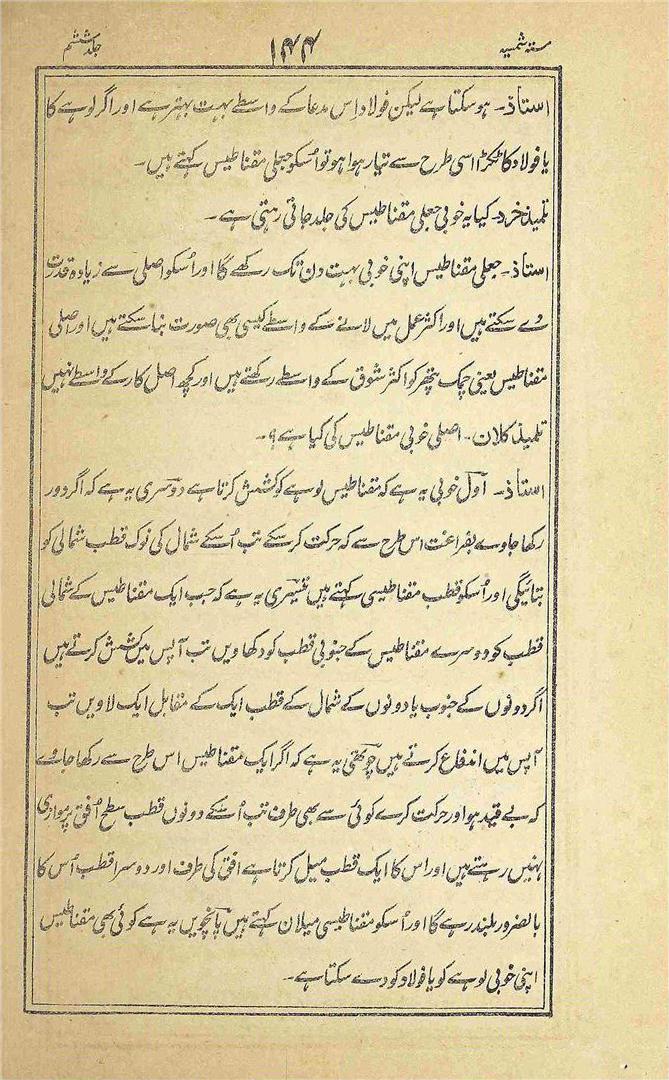 ستہ شمسیہ ۱۴۴ جلد ششم
استاذ۔ ہو سکتا ہے لیکن فولاد اس مدعا کے واسطے بہت بہتر ہے اور اگر لوہے کا
یا فولاد کا ٹکڑا اسی طرح سے تیار ہوا ہو تو اُسکو جعلی مقناطیس کہتے ہیں۔
تلمیذ خرد۔ کیا یہ خوبی جعلی مقناطیس کی جلد جاتی رہتی ہے۔
استاذ۔ جعلی مقناطیس اپنی خوبی بہت دن تک رکھے گا اور اُسکو اصلی سے زیادہ قدرت
دے سکتے ہیں اور اکثر عمل میں لانے کے واسطے کیسی بھی صورت بنا سکتے ہیں اور اصلی
مقناطیس یعنی چمک پتھر کو اکثر شوق کے واسطے رکھتے ہیں اور کچھ اصل کار کے واسطے نہیں
تلمیذ کلان۔ اصلی خوبی مقناطیس کی کیا ہے؟۔
استاذ۔ اول خوبی یہ ہے کہ مقناطیس لوہے کو کشش کرتا ہے دوسری یہ ہے کہ اگر دور
رکھا جاوے بفراغت اس طرح سے کہ حرکت کر سکے تب اُسکے شمال کی نوک قطب شمالی کو
بتائیگی اور اُسکو قطب مقناطیسی کہتے ہیں تیسری یہ ہے کہ جب ایک مقناطیس کے شمالی
قطب کو دوسرے مقناطیس کے جنوبی قطب کو دکھاویں تب آپس میں کشش کرتے ہیں
اگر دونوں کے جنوب یا دونوں کے شمال کے قطب ایک کے مقابل ایک لاویں تب
آپس میں اندفاع کرتے ہیں چوتھی یہ ہے کہ اگر ایک مقناطیس اس طرح سے رکھا جاوے
کہ بے قید ہو اور حرکت کرے کوئی سے بھی طرف تب اُسکے دونوں قطب سطح اُفق پر موازی
نہیں رہتے ہیں اور اس کا ایک قطب میل کرتا ہے افق کی طرف اور دوسرا قطب اُس کا
بالضرور بلند رہے گا اور اُسکو مقناطیسی میلان کہتے ہیں پانچویں یہ ہے کوئی بھی مقناطیس
اپنی خوبی لوہے کو یا فولاد کو دے سکتا ہے۔